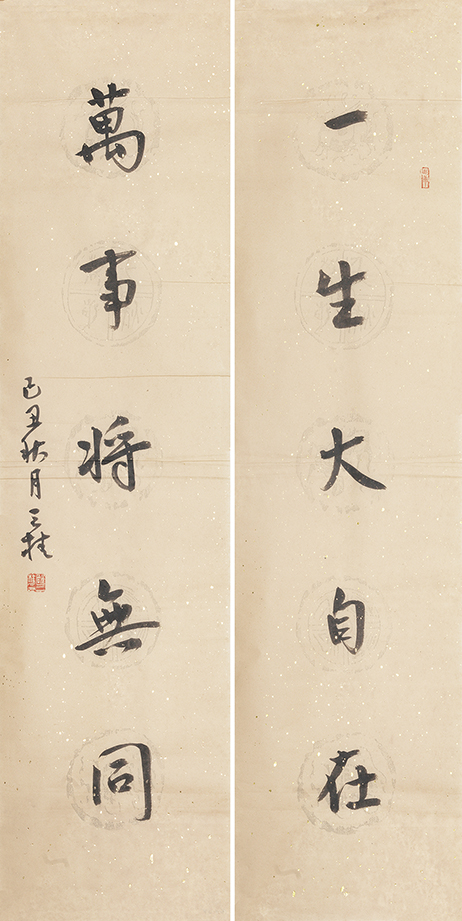 一生大自在
萬事将無同
己丑秋月